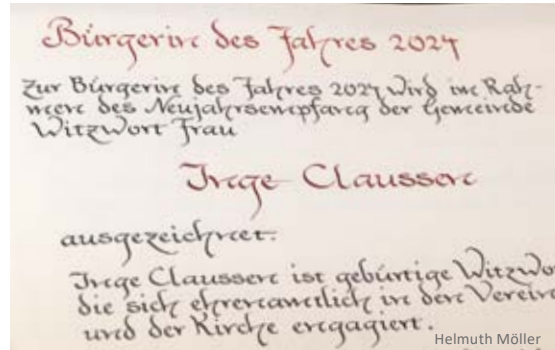 Bürgerin des Jahres 2024
Zur Bürgerin des Jahres 2024 wird im Rah-
men des Neujahrsempfang der Gemeinde
Witzwort Frau
Inge Claussen
ausgezeichnet.
Inge Claussen ist gebürtige Witzwo
die sich ehrenamtlich in den Verein
und der Kirche engagiert.
Helmuth Möller